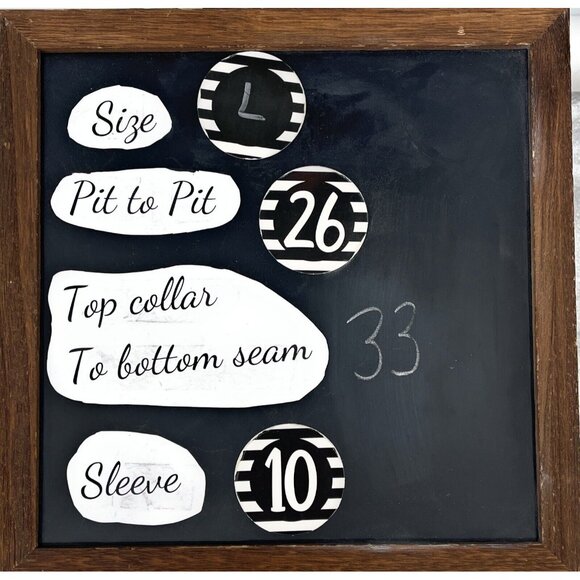 Size L
Pit to Pit 26
Top collar
To bottom seam 33
Sleeve 10